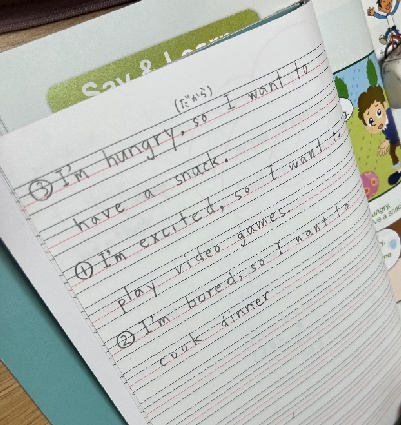 Say & Learn
(だから)
③ I'm hungry, so I want to
have a snack.
① I'm excited, so I want to
play video games.
② I'm bored, so I want to
cook dinner